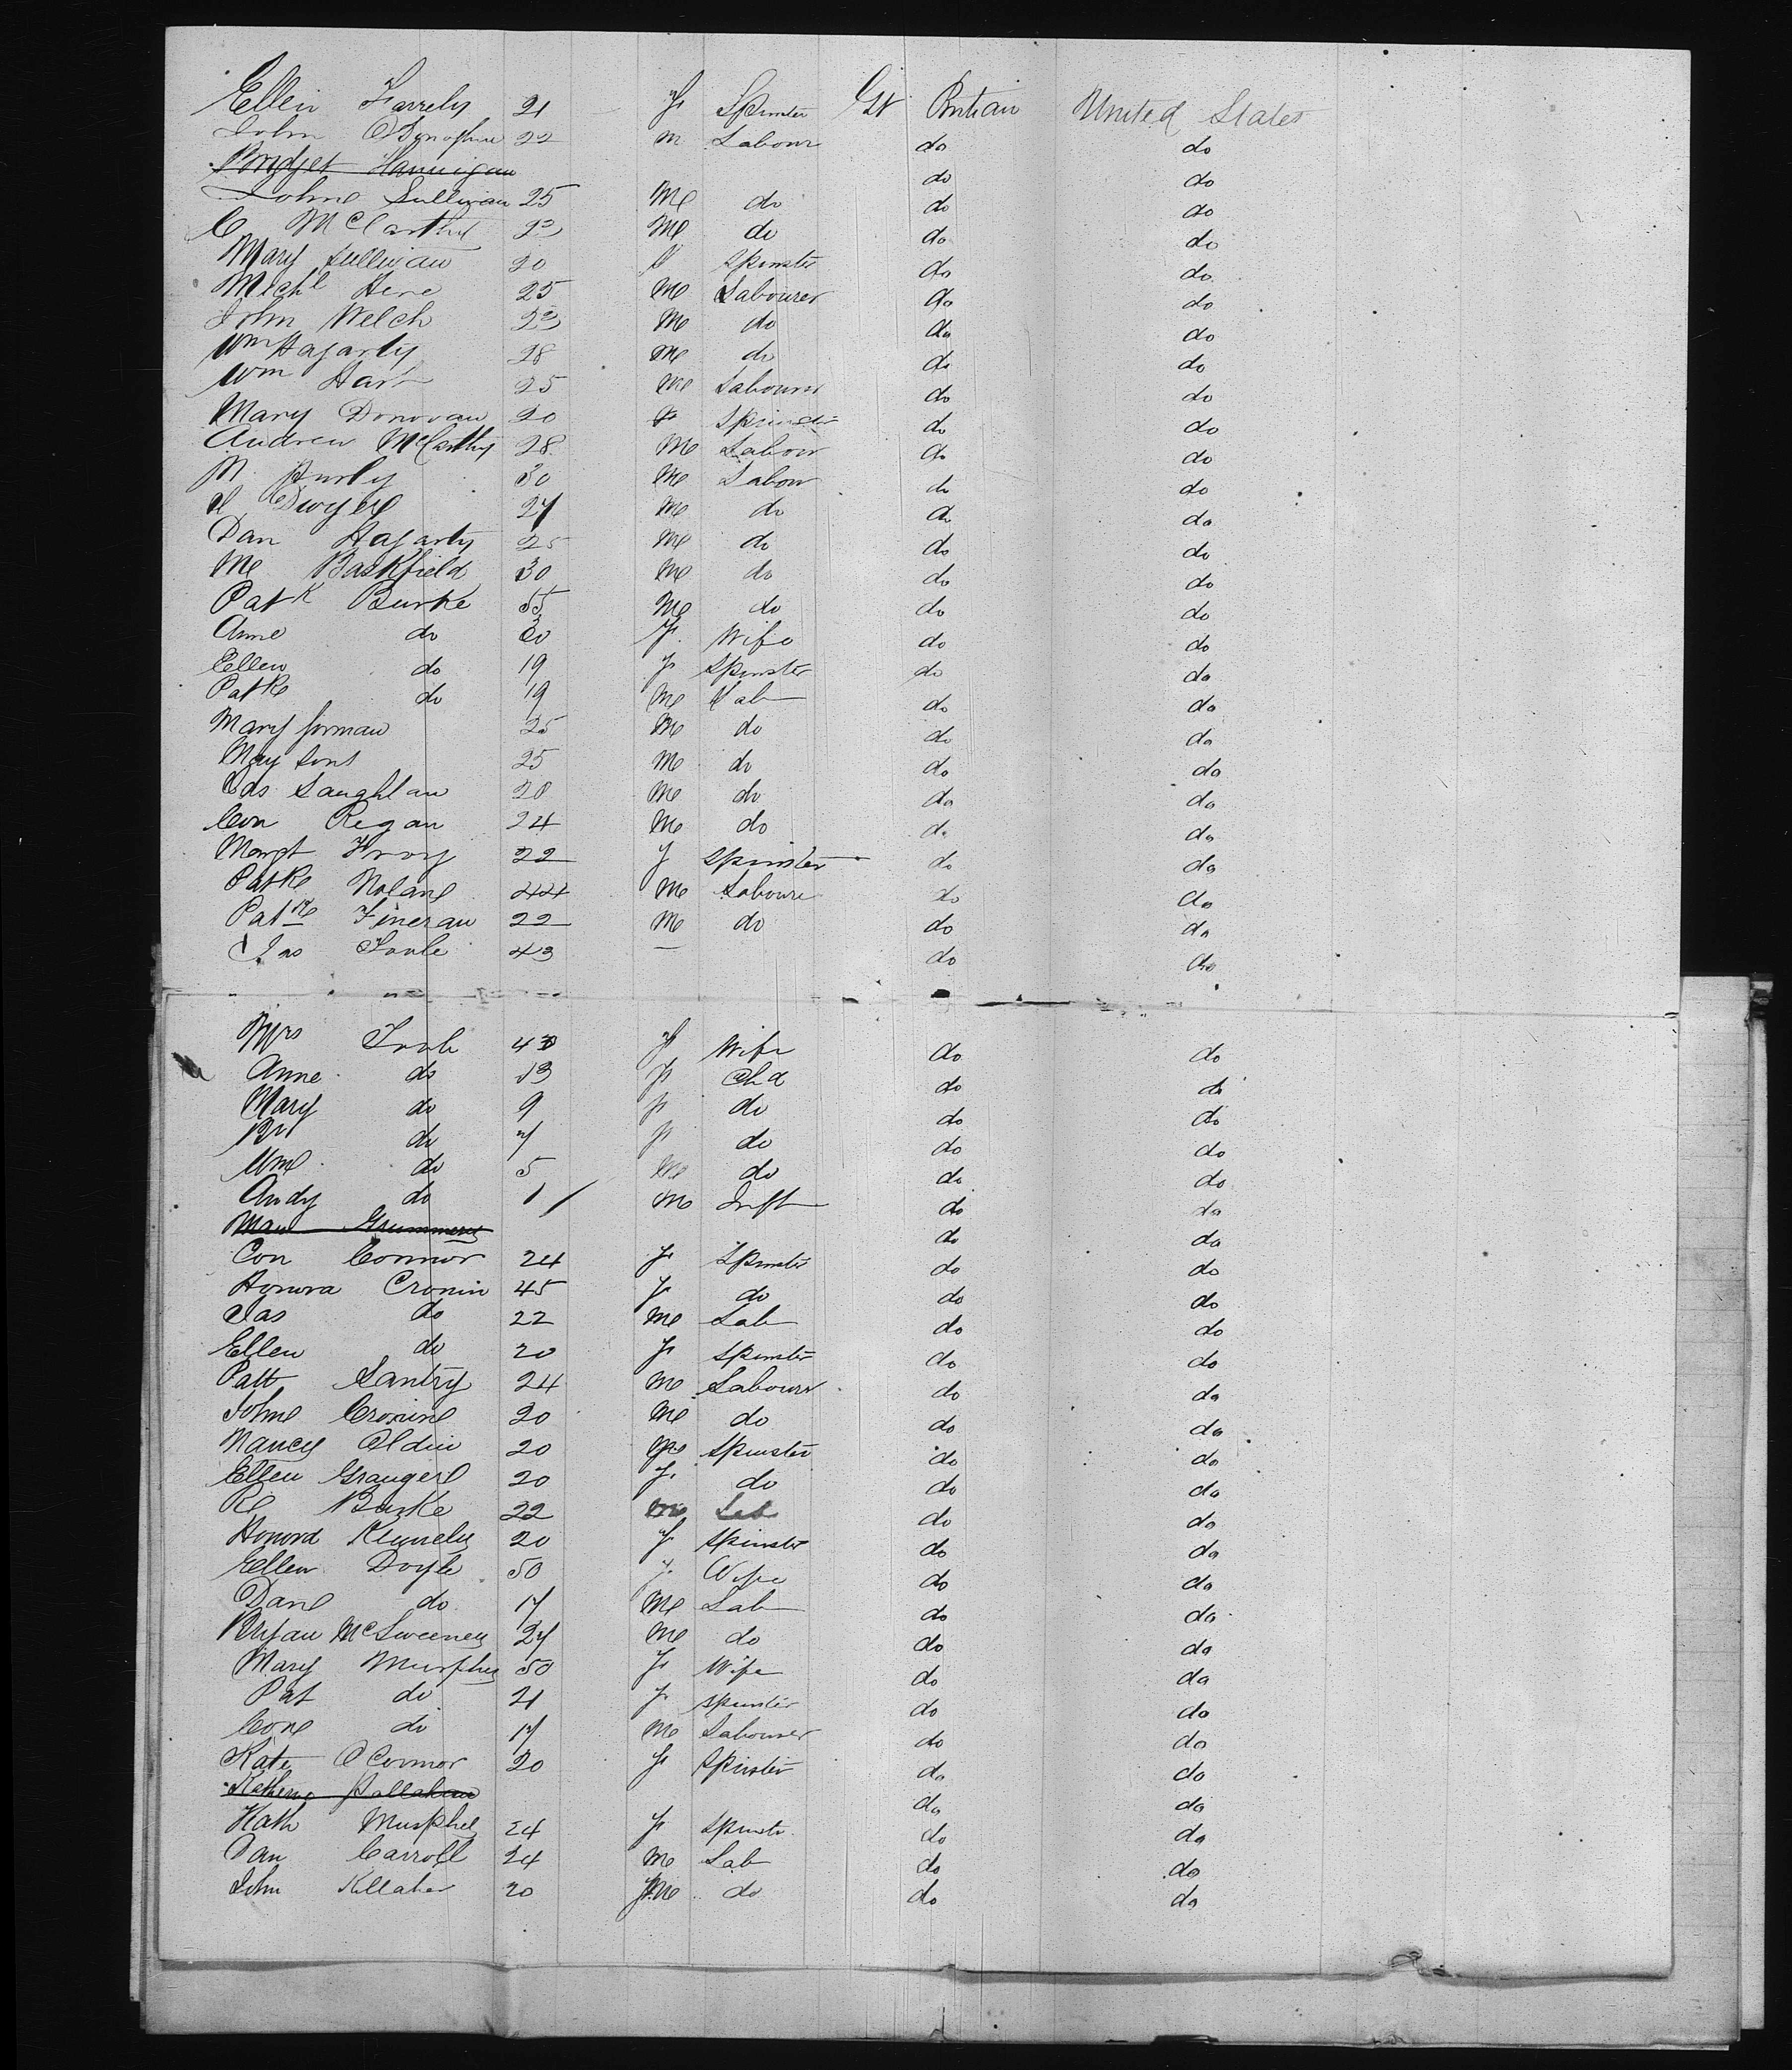 Ellen Farrely 21 F Spinster Gt Britian United States
John O'Donoghue 22 M Labour do do
Bridget Hannigan do do
John Sullivan 25 M do do do
C McCarthy 23 M do do do
Mary Sullivan 20 F Spinster do do
Michl Here 25 M Labourer do do
John Welch 23 M do do do
Wm Hagarty 28 M do do do
Wm Hart 25 M Labourer do do
Mary Donovan 20 F Spinster do do
Andrew McCarthy 28 M Labour do do
M Hurly 30 M Labour do do
Dwyer 27 M do do do
Dan Hagarty 25 M do do do
M Baskfield 30 M do do do
Patk Burke 55 M do do do
Anne do F Wife do do
Ellen do 19 F Spinster do do
Patk do 19 M Lab do do
Mary Gorman 25 M do do do
25 M do do do
Jas Laughlan 20 M do do do
Con Regan 24 M do do do
Margt 22 F Spinster do do
Patk Nolan 44 M Laboure do do
Patk Fineran 22 M do do do
Jas Toole 43 do do
Mrs Toole 43 F Wife do do
Anne do 13 F Chd do do
Mary do 9 F do do do
do 7 F do do do
Wm do 5 M do do do
Andy do 1 M Inft do do
Grummery do do
Con Connor 24 F Spinster do do
Honora Cronin 45 F do do do
Jas do 22 M Lab do do
Ellen do 20 F Spinster do do
Patt Santry 24 M Labourer do do
John Cronin 20 M do do do
Nancy 20 F Spinster do do
Ellen Granger 20 F do do do
Burke 22 M Lab do do
Honora Kennely 20 F Spinster do do
Ellen Doyle 50 F Wife do do
Dan do 17 M Lab do do
Bryan McSweeney 27 M do do do
Mary Murphy 50 F Wife do do
Pat do 21 F Spinster do do
Con do 17 M Labourer do do
Kate O'Connor 20 F Spinster do do
Callahan do do
Kath Murphy 24 F Spinster do do
Dan Carroll 24 M Lab do do
John Kellaher 20 M do do do